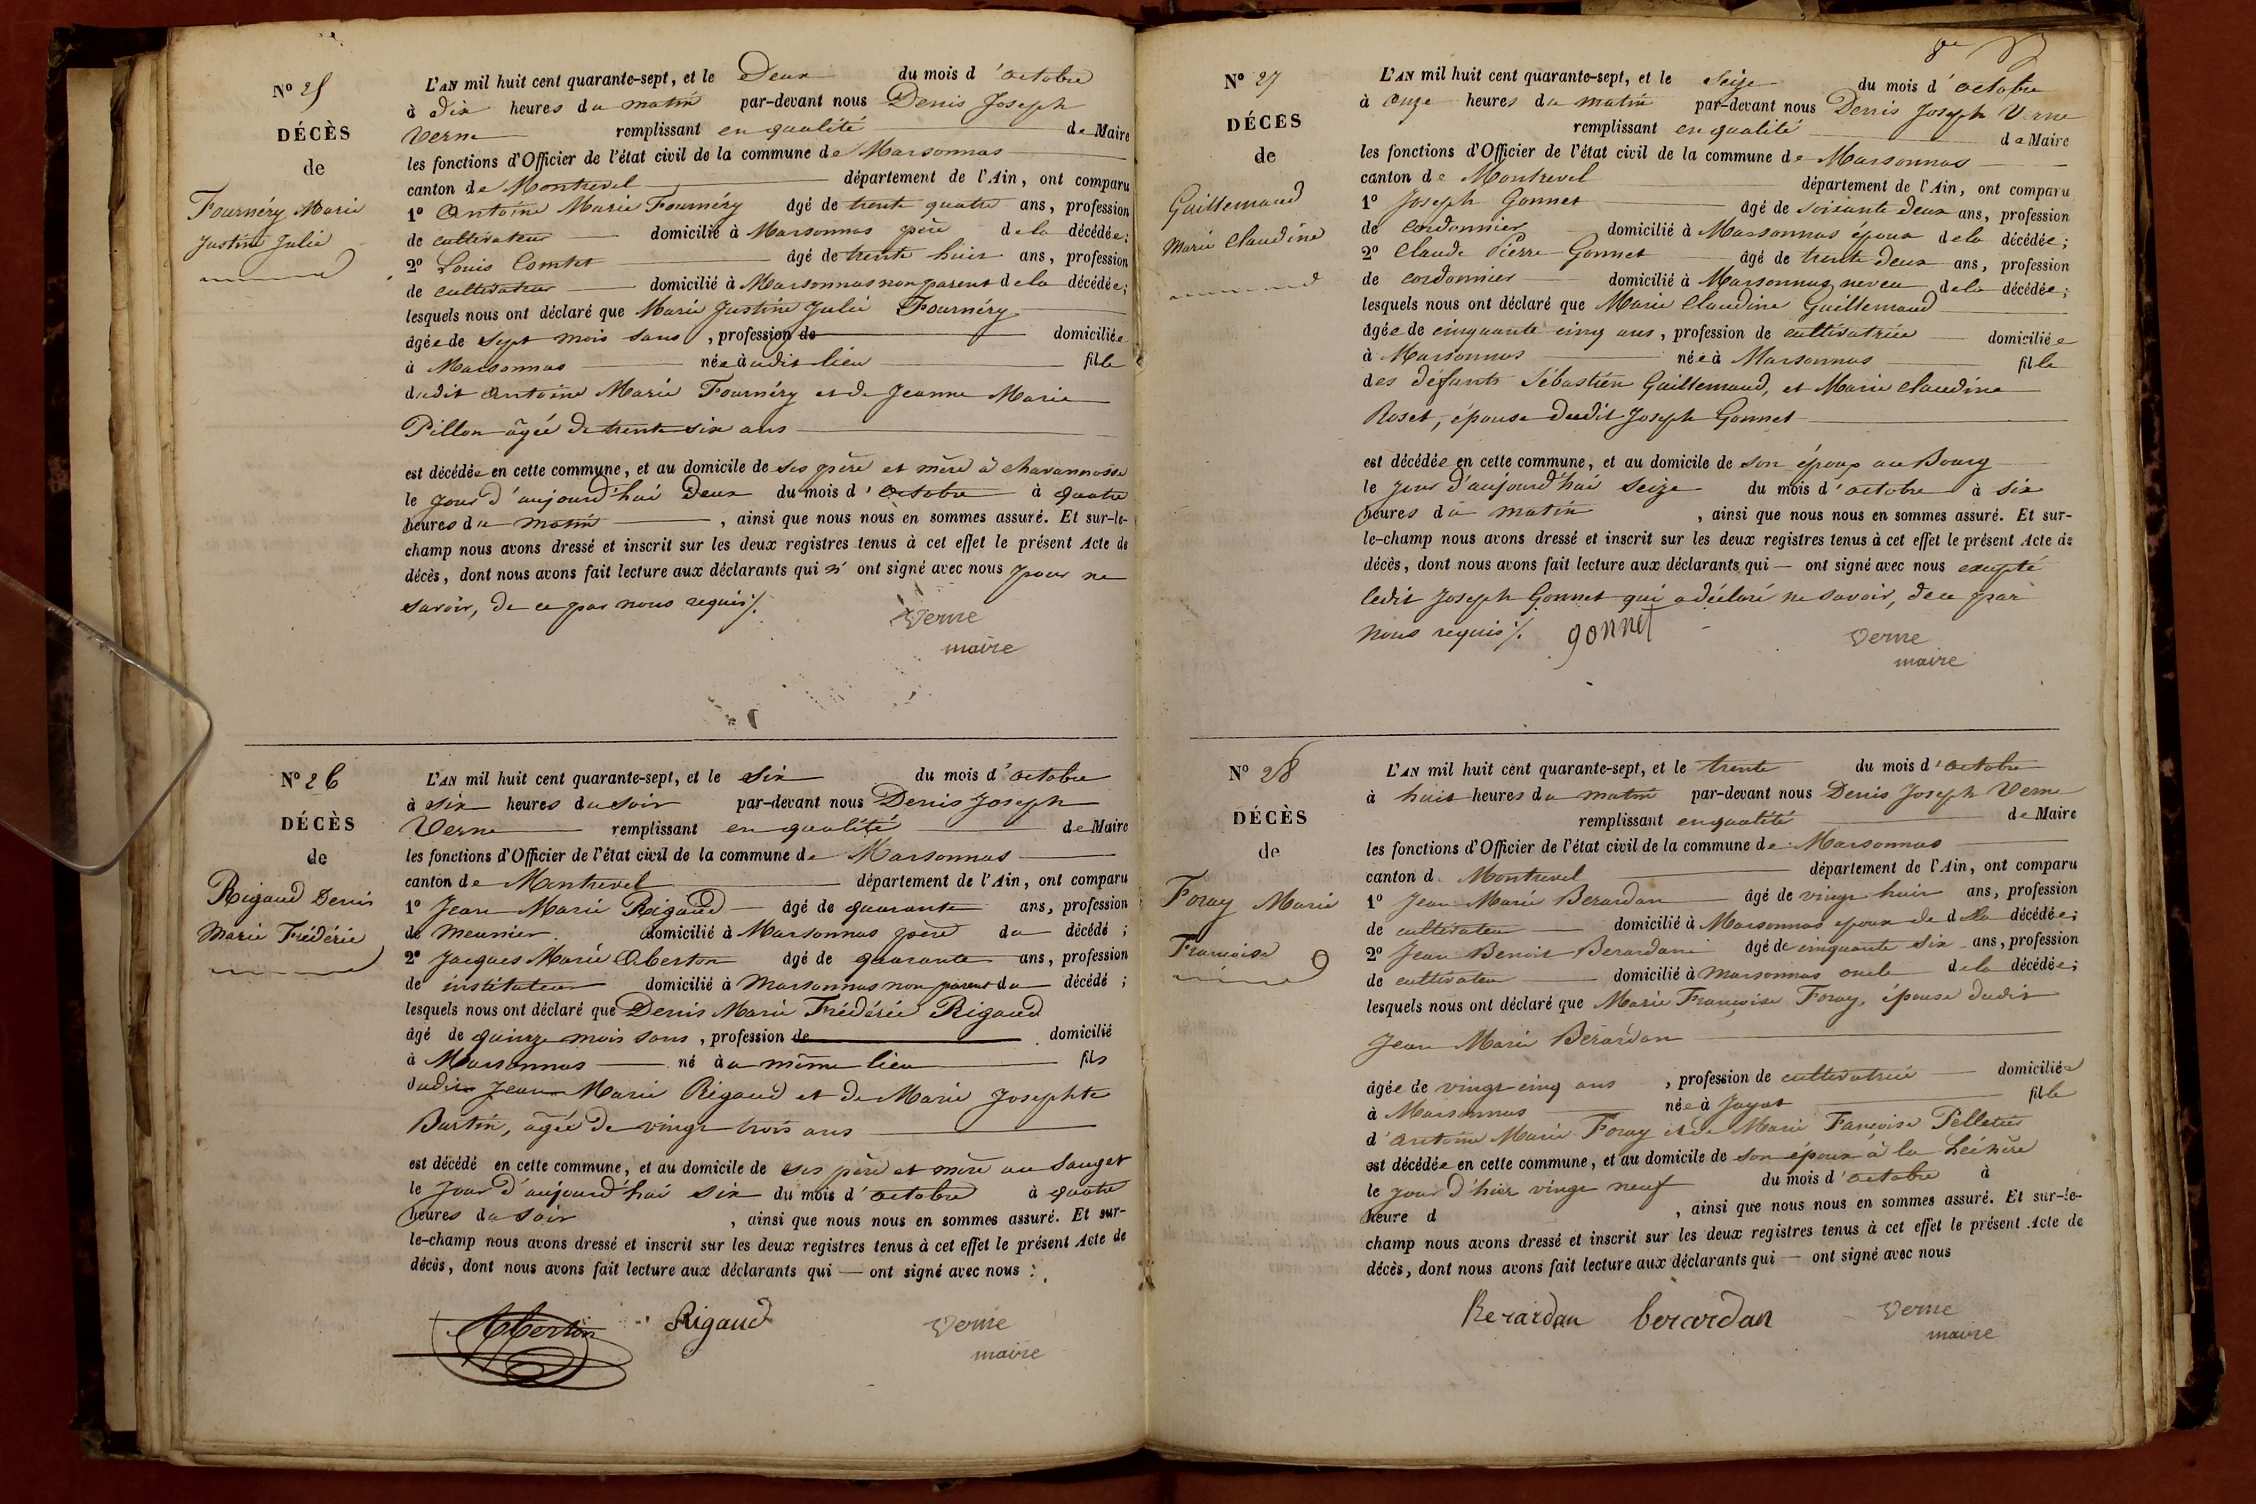 N° 25
DÉCÈS
de
Fournéry Marie
Justine Julie
L'AN mil huit cent quarante-sept, et le Deux du mois d'octobre
à dix heures du matin par-devant nous Denis Joseph
Verne remplissant en qualité de Maire
les fonctions d'Officier de l'état civil de la commune de Marsonnas
canton de Montrevel département de l'Ain, ont comparu
1° Antoine Marie Fournéry âgé de trente quatre ans, profession
de cultivateur domicilié à Marsonnas père de la décédée;
2° Louis Comtet âgé de trente huit ans, profession
de cultivateur domicilié à Marsonnas non parent de la décédée;
lesquels nous ont déclaré que Marie Justine Julie Fournéry
âgée de sept mois sans, profession de domiciliée
à Marsonnas née audit lieu fille
dudit Antoine Marie Fournéry et de Jeanne Marie
Pillon âgée de trente six ans
est décédée en cette commune, et au domicile de ses père et mère à Chavannosse
le jour d'aujourd'hui Deux du mois d'octobre à quatre
heures du matin, ainsi que nous nous en sommes assuré. Et sur-le-
champ nous avons dressé et inscrit sur les deux registres tenus à cet effet le présent Acte de
décès, dont nous avons fait lecture aux déclarants qui n'ont signé avec nous pour ne
savoir, de ce par nous requis ./.
Verne
maire
N° 26
DÉCÈS
de
Rigaud Denis
Marie Frédéric
L'AN mil huit cent quarante-sept, et le six du mois d'octobre
à six heures du soir par-devant nous Denis Joseph
Verne remplissant en qualité de Maire
les fonctions d'Officier de l'état civil de la commune de Marsonnas
canton de Montrevel département de l'Ain, ont comparu
1° Jean Marie Rigaud âgé de quarante ans, profession
de meunier domicilié à Marsonnas père du décédé;
2° Jacques Marie Oberton âgé de quarante ans, profession
de instituteur domicilié à Marsonnas non parent du décédé;
lesquels nous ont déclaré que Denis Marie Frédéric Rigaud
âgé de quinze mois sans, profession de domicilié
à Marsonnas né au même lieu fils
dudit Jean Marie Rigaud et de Marie Josephte
Burtin, âgée de vingt trois ans
est décédé en cette commune, et au domicile de ses père et mère au Sauget
le jour d'aujourd'hui six du mois d'octobre à quatre
heures du soir, ainsi que nous nous en sommes assuré. Et sur-
le-champ nous avons dressé et inscrit sur les deux registres tenus à cet effet le présent Acte de
décès, dont nous avons fait lecture aux déclarants qui — ont signé avec nous :.
Oberton Rigaud Verne
maire
N° 27
DÉCÈS
de
Guillemaud
Marie Claudine
L'AN mil huit cent quarante-sept, et le seize du mois d'octobre
à onze heures du matin par-devant nous Denis Joseph Verne
remplissant en qualité de Maire
les fonctions d'Officier de l'état civil de la commune de Marsonnas
canton de Montrevel département de l'Ain, ont comparu
1° Joseph Gonnet âgé de soixante deux ans, profession
de cordonnier domicilié à Marsonnas époux de la décédée;
2° Claude Pierre Gonnet âgé de trente deux ans, profession
de cordonnier domicilié à Marsonnas neveu de la décédée;
lesquels nous ont déclaré que Marie Claudine Guillemaud
âgée de cinquante cinq ans, profession de cultivatrice domiciliée
à Marsonnas née à Marsonnas fille
des défunts Sébastien Guillemaud, et Marie Claudine
Roset, épouse dudit Joseph Gonnet
est décédée en cette commune, et au domicile de son époux au Bourg
le jour d'aujourd'hui seize du mois d'octobre à six
heures du matin, ainsi que nous nous en sommes assuré. Et sur-
le-champ nous avons dressé et inscrit sur les deux registres tenus à cet effet le présent Acte de
décès, dont nous avons fait lecture aux déclarants qui — ont signé avec nous excepté
ledit Joseph Gonnet qui a déclaré ne savoir, de ce par
nous requis ./. gonnet Verne
maire
N° 28
DÉCÈS
de
Foray Marie
Francoise
L'AN mil huit cent quarante-sept, et le trente du mois d'octobre
à huit heures du matin par-devant nous Denis Joseph Verne
remplissant en qualité de Maire
les fonctions d'Officier de l'état civil de la commune de Marsonnas
canton d Montrevel département de l'Ain, ont comparu
1° Jean Marie Berardan âgé de vingt huit ans, profession
de cultivateur domicilié à Marsonnas epoux de de la décédée;
2° Jean Benoit Berardan âgé de cinquante six ans, profession
de cultivateur domicilié à Marsonnas oncle de la décédée;
lesquels nous ont déclaré que Marie Françoise Foray, épouse dudit
Jean Marie Bérardan
âgée de vingt cinq ans, profession de cultivatrice domiciliée
à Marsonnas née à Jayat fille
d'Antoine Marie Foray et de Marie Fançoise Pelletier
est décédée en cette commune, et au domicile de son époux à la Léchère
le jour d'hier vingt neuf du mois d'octobre à
heure d, ainsi que nous nous en sommes assuré. Et sur-le-
champ nous avons dressé et inscrit sur les deux registres tenus à cet effet le présent Acte de
décès, dont nous avons fait lecture aux déclarants qui — ont signé avec nous
Berardan berardan Verne
maire